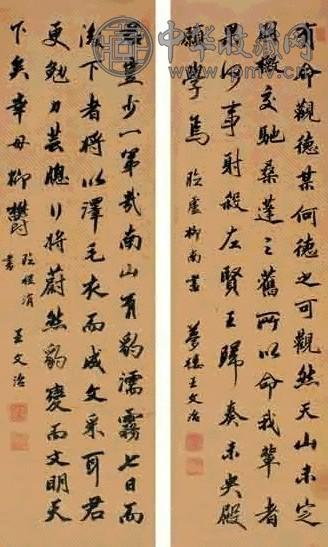 中华收藏网
有命觀德某何德之可觀然天山未定
羽檄交馳桑蓬之舊所以命我輩者
果何事射殺左賢王歸奏未央殿
願學焉 臨盧柳南書 夢樓王文治
豈少一第哉南山有豹濡霧七日而
下者將以澤毛衣而成文采耳君
更勉力芸牕行將蔚然豹變而文明天
下矣幸毋抑鬱 臨程涓書 王文治